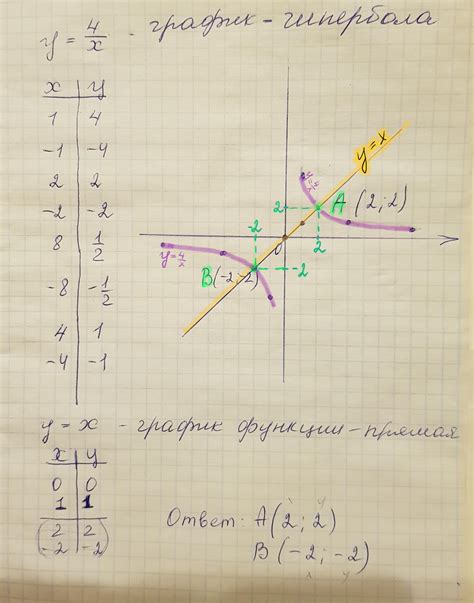 y = 4/x - график - гипербола
x | y
1 | 4
-1 | -4
2 | 2
-2 | -2
8 | 1/2
-8 | -1/2
4 | 1
-4 | -1
y=x
y=4/x
A (2;2)
2
-2
0
2
y=4/x
B(-2;-2)
-2
y = x - график функции - прямая
x | y
0 | 0
1 | 1
2 | 2
-2 | -2
Ответ: A(2; 2)
x y
B(-2; -2)
x y